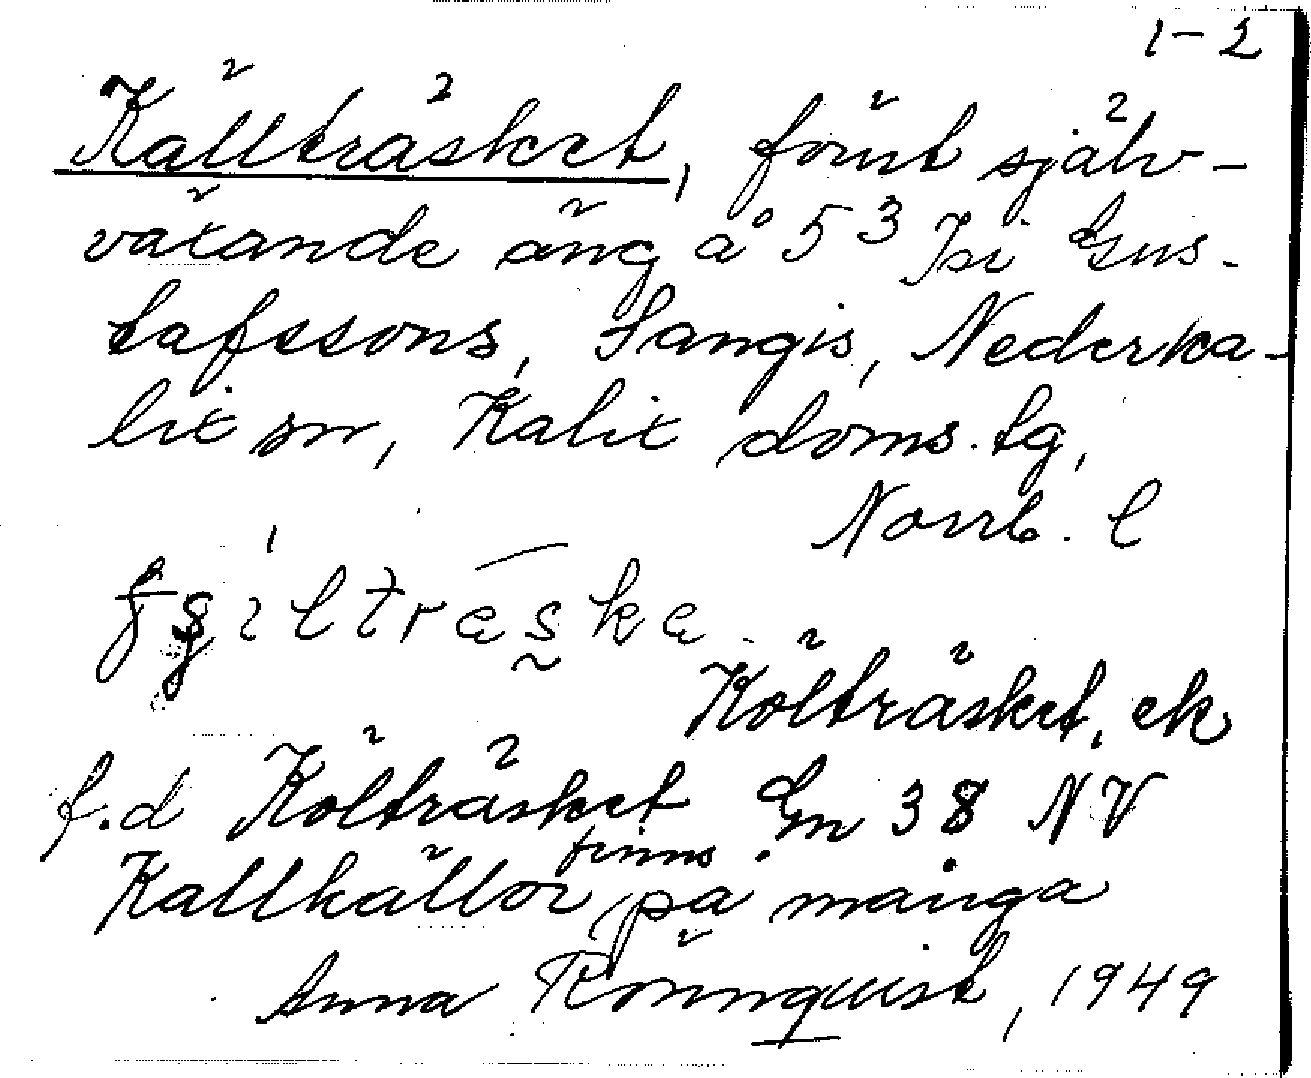 1-2
Källträsket, förut själv-
växande äng å 5³ Jpi Gus-
tafssons, Sangis, Nederka-
lix sn, Kalix doms. tg,
Norrb. l
Költräsket, ek
f.d Költräsket Gn 38 NV
Kallkällor finns på många
Anna Rönnquist, 1949